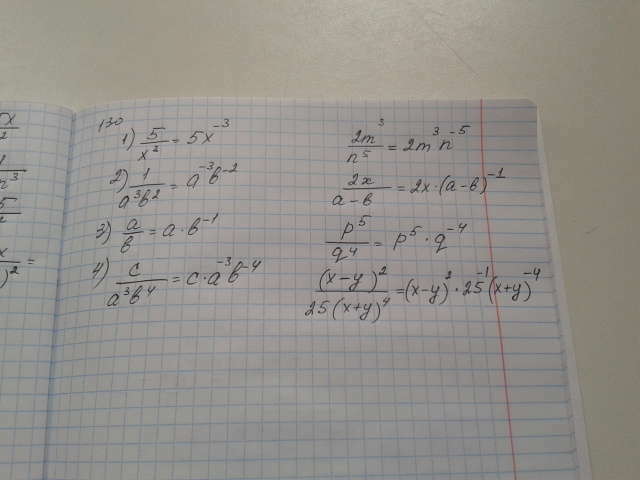 130
1) 5/x² = 5x⁻³
2) 1/a³b² = a⁻³b⁻²
3) a/b = a·b⁻¹
4) c/a³b⁴ = c·a⁻³b⁻⁴
2m³/n⁵ = 2m³n⁻⁵
2x/a-b = 2x·(a-b)⁻¹
p⁵/q⁴ = p⁵·q⁻⁴
(x-y)²/25(x+y)⁴ = (x-y)²·25⁻¹(x+y)⁻⁴